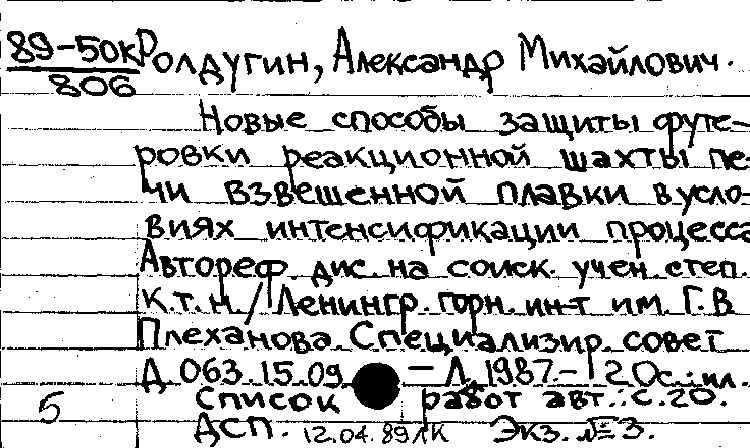 89-50к Ролдугин, Александр Михайлович.
806
Новые способы защиты футе-
ровки реакционной шахты пе-
чи взвешенной плавки в усло-
виях интенсификации процесса
Автореф. дис. на соиск. учен. степ.
к.т.н. / Ленингр. горн. ин-т им. Г.В
Плеханова. Специализир. совет
Д. 063.15.09 — Л. 1987.- 20с.: ил.
Список работ авт.: с.20.
5
ДСП. 12.04.89 ЛК Экз. № 3.